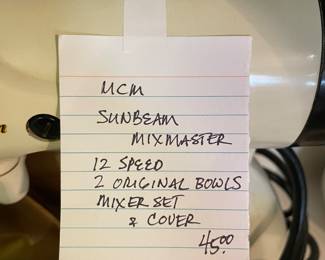 MCM
SUNBEAM
MIXMASTER
12 SPEED
2 ORIGINAL BOWLS
MIXER SET
& COVER
45.00